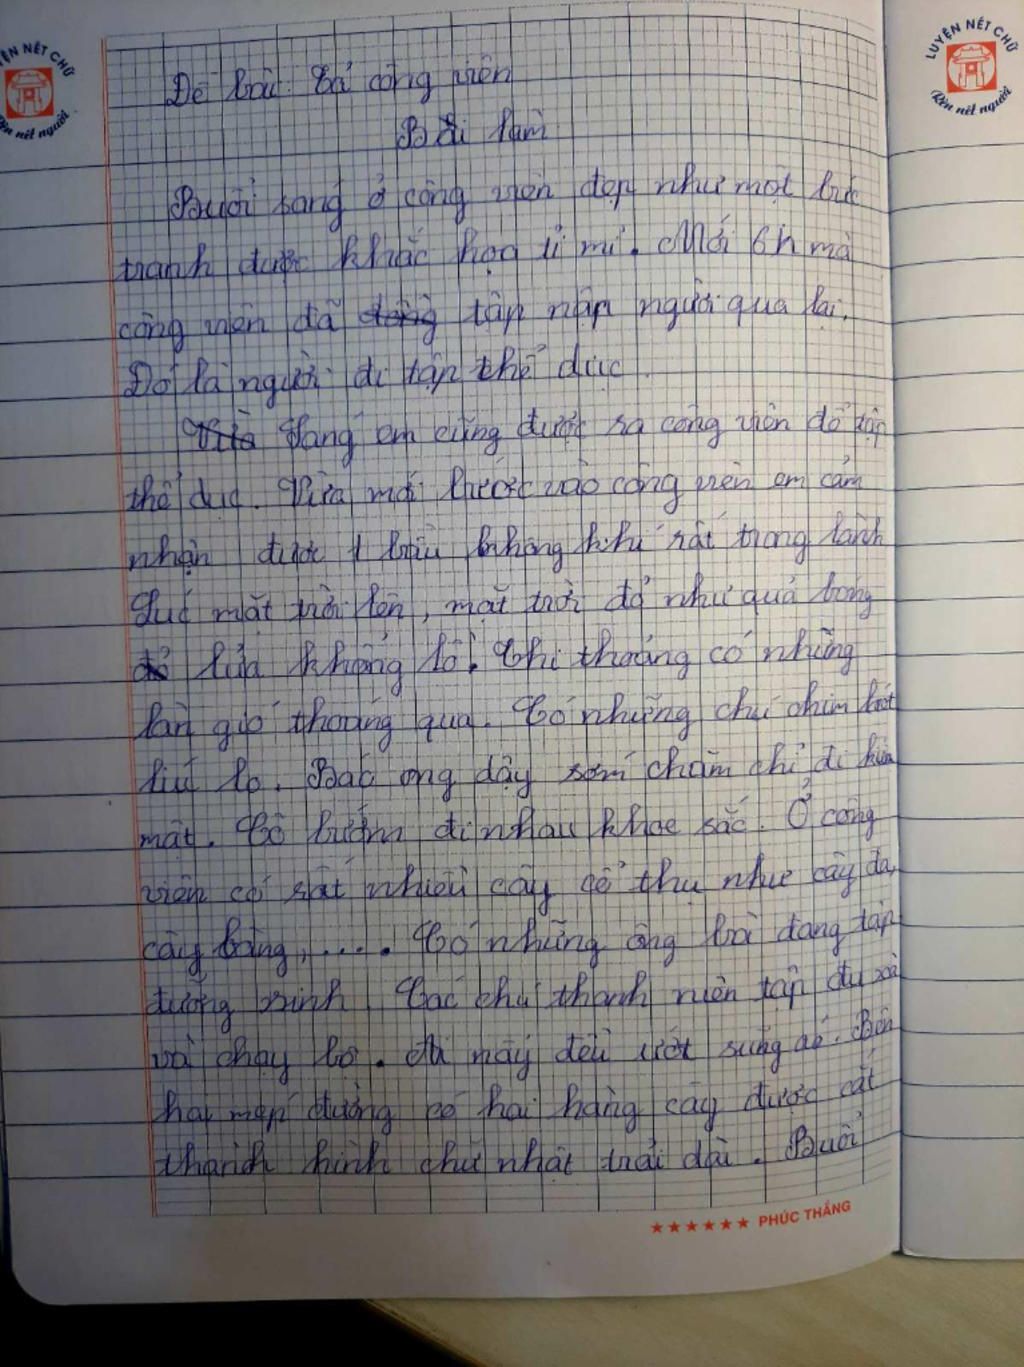 LUYỆN NÉT CHỮ
Rèn nết người
LUYỆN NÉT CHỮ
Rèn nết người
Đề bài: Tả công viên
Bài làm
Buổi sáng ở công viên đẹp như một bức
tranh được khắc họa tỉ mỉ. Mới 6h mà
công viên đã đông tập nập người qua lại.
Đó là người đi tập thể dục.
Vừa Sáng em cũng được ra công viên để tập
thể dục. Vừa mới bước vào công viên em cảm
nhận được 1 bầu không khí rất trong lành
Lúc mặt trời lên, mặt trời đỏ như quả bóng
đỏ lửa khổng lồ. Thi thoảng có những
làn gió thoáng qua. Có những chú chim hót
líu lo. Bác ong dậy sớm chăm chỉ đi kiếm
mật. Cô bướm đi nhau khoe sắc. Ở công
viên có rất nhiều cây cổ thụ như cây đa,
cây bàng,.... Có những ông bà đang tập
dưỡng sinh. Các chú thanh niên tập đu xà
và chạy bộ. Ai nấy đều ướt sũng áo. Bên
hai mép đường có hai hàng cây được cắt
thành hình chữ nhật trải dài. Buổi
PHÚC THẮNG